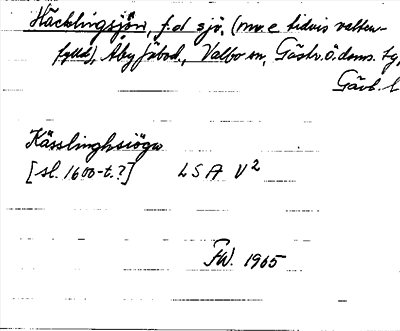 Häcklingsjön, f.d sjö, (num.e tidvis vatten-
fylld), Åby fäbod., Valbo sn, Gästr. ö. doms. tg,
Gävl. l
Kässlinghsiögn
[sl. 1600-t.?] LSA V2
FW. 1965